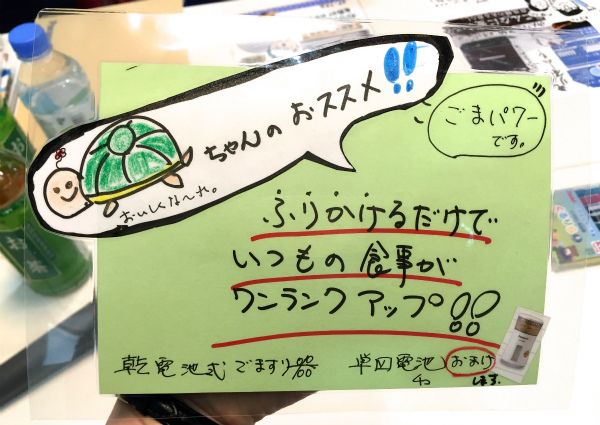 ちゃんのおススメ!!
おいしくな〜れ。
ごまパワー
です。
ふりかけるだけで
いつもの食事が
ワンランクアップ!!
乾電池式ごますり器 単四電池おまけ
します。